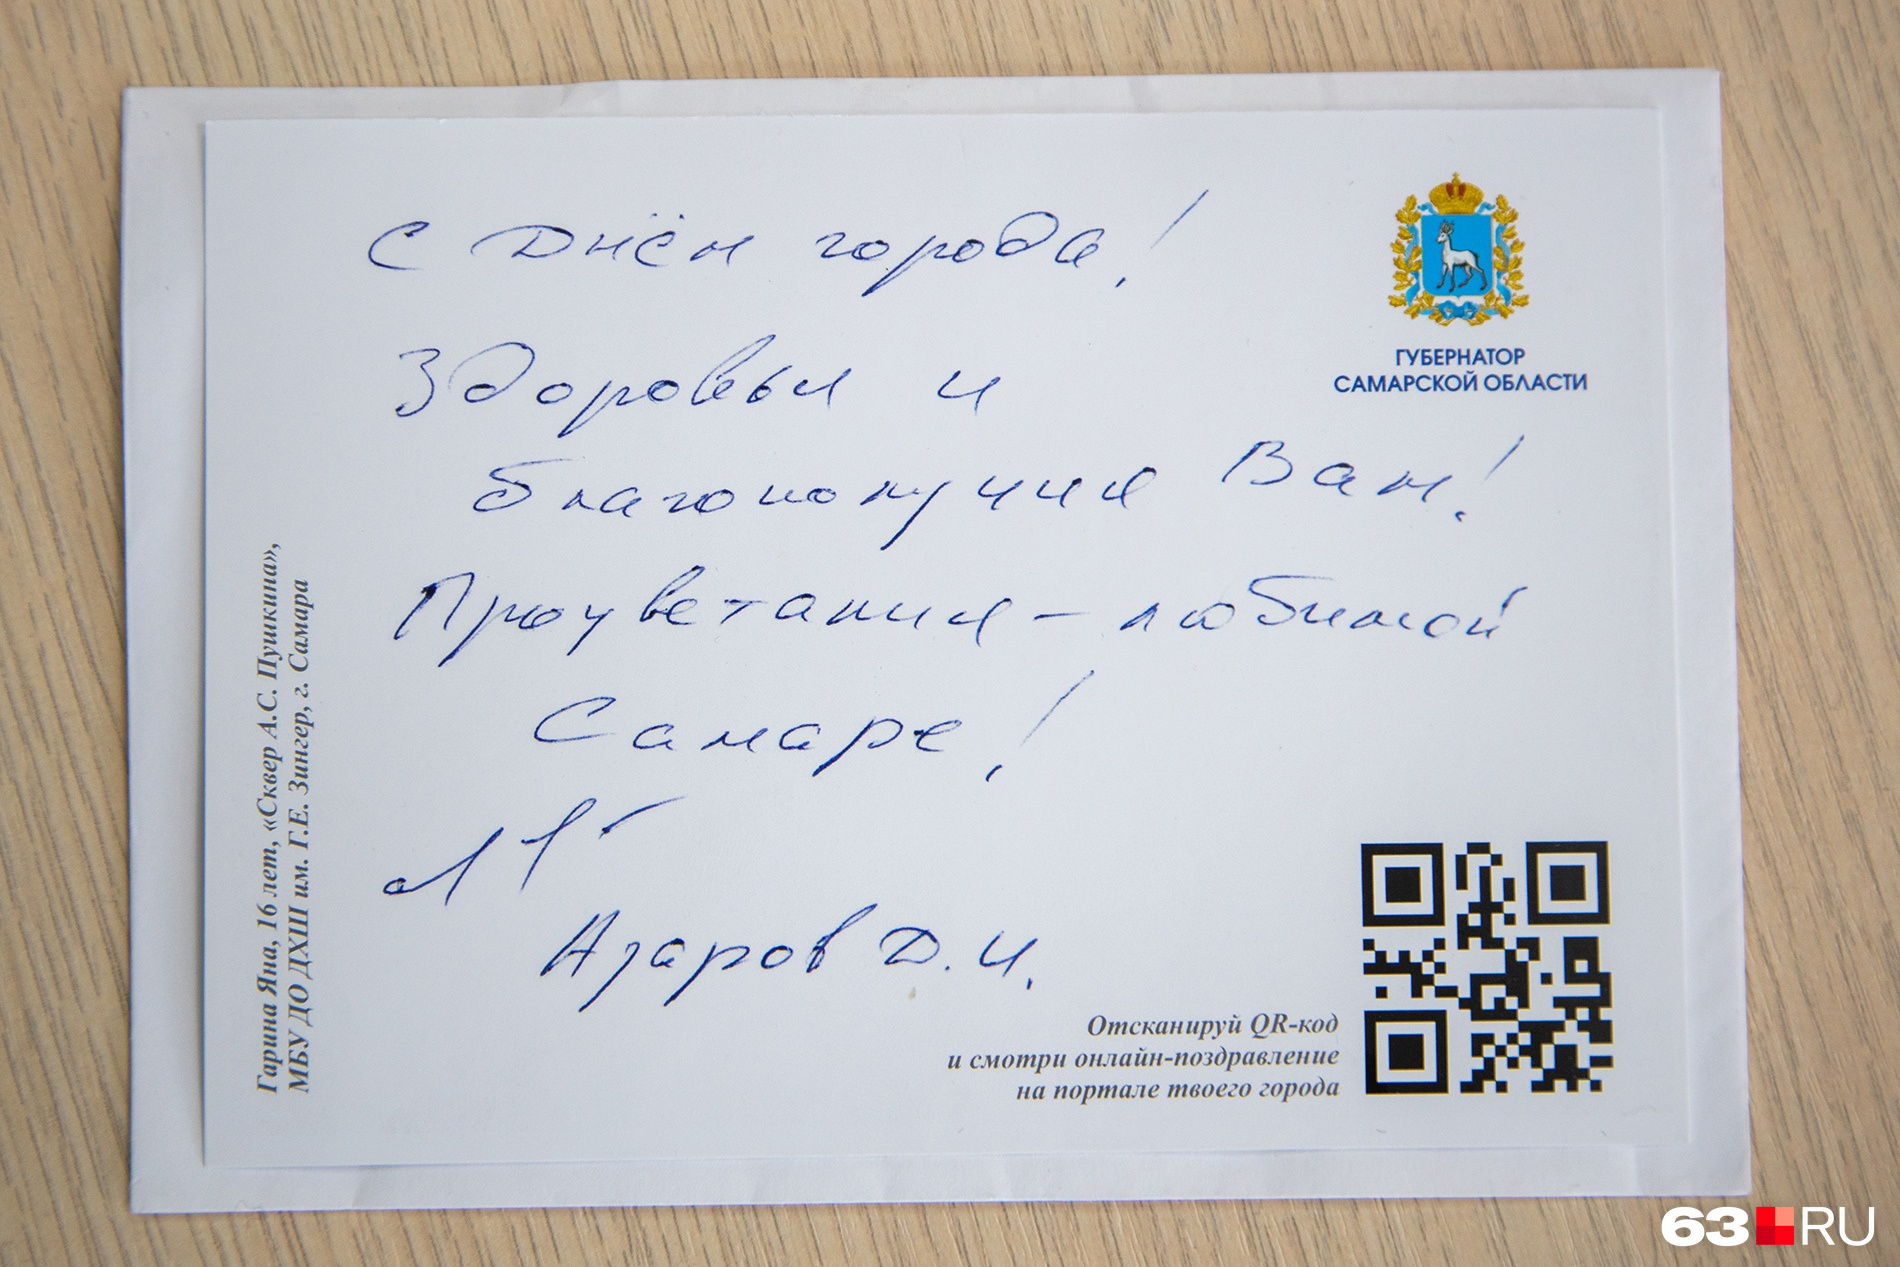 С Днём города!
Здоровья и
благополучия Вам!
Процветания – любимой
Самаре!
Азаров Д.И.
ГУБЕРНАТОР
САМАРСКОЙ ОБЛАСТИ
Гарина Яна, 16 лет, «Сквер А.С. Пушкина»,
МБУ ДО ДХШ им. Г.Е. Зингер, г. Самара
Отсканируй QR-код
и смотри онлайн-поздравление
на портале твоего города
63 RU